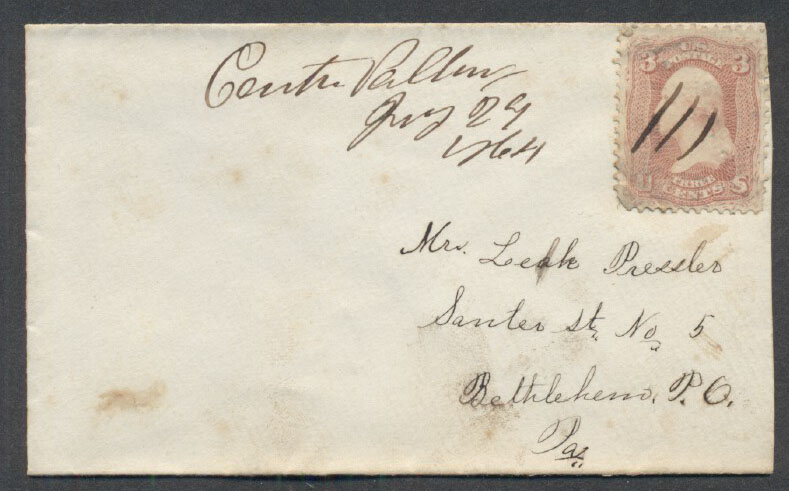 Centre Valley
July 29
1864
U.S.
POSTAGE
3 3
U S
THREE
CENTS
Mrs. Leah Pressler
Santer St, No 5
Bethlehem. P. O.
Pa,